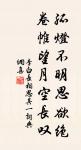 孤燈不明思欲絕
卷帷望月空長叹
李白長相思其一詞典
網集